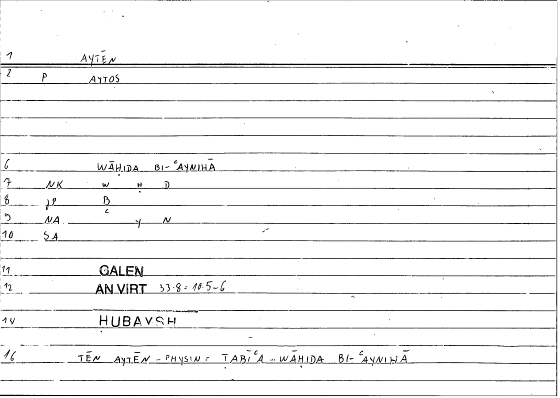 1 AYTĒN
2 P AYTOS
6 WĀḤIDA BI-ʿAYNIHĀ
7 NK W Ḥ D
8 JP B
9 NA ʿ Y N
10 SA
11 GALEN
12 AN VIRT 33.8 = 10.5-6
14 HUBAYSH
16 TĒN AYTĒN - PHYSIN = ṬABĪʿA - WĀḤIDA BI-ʿAYNIHĀ